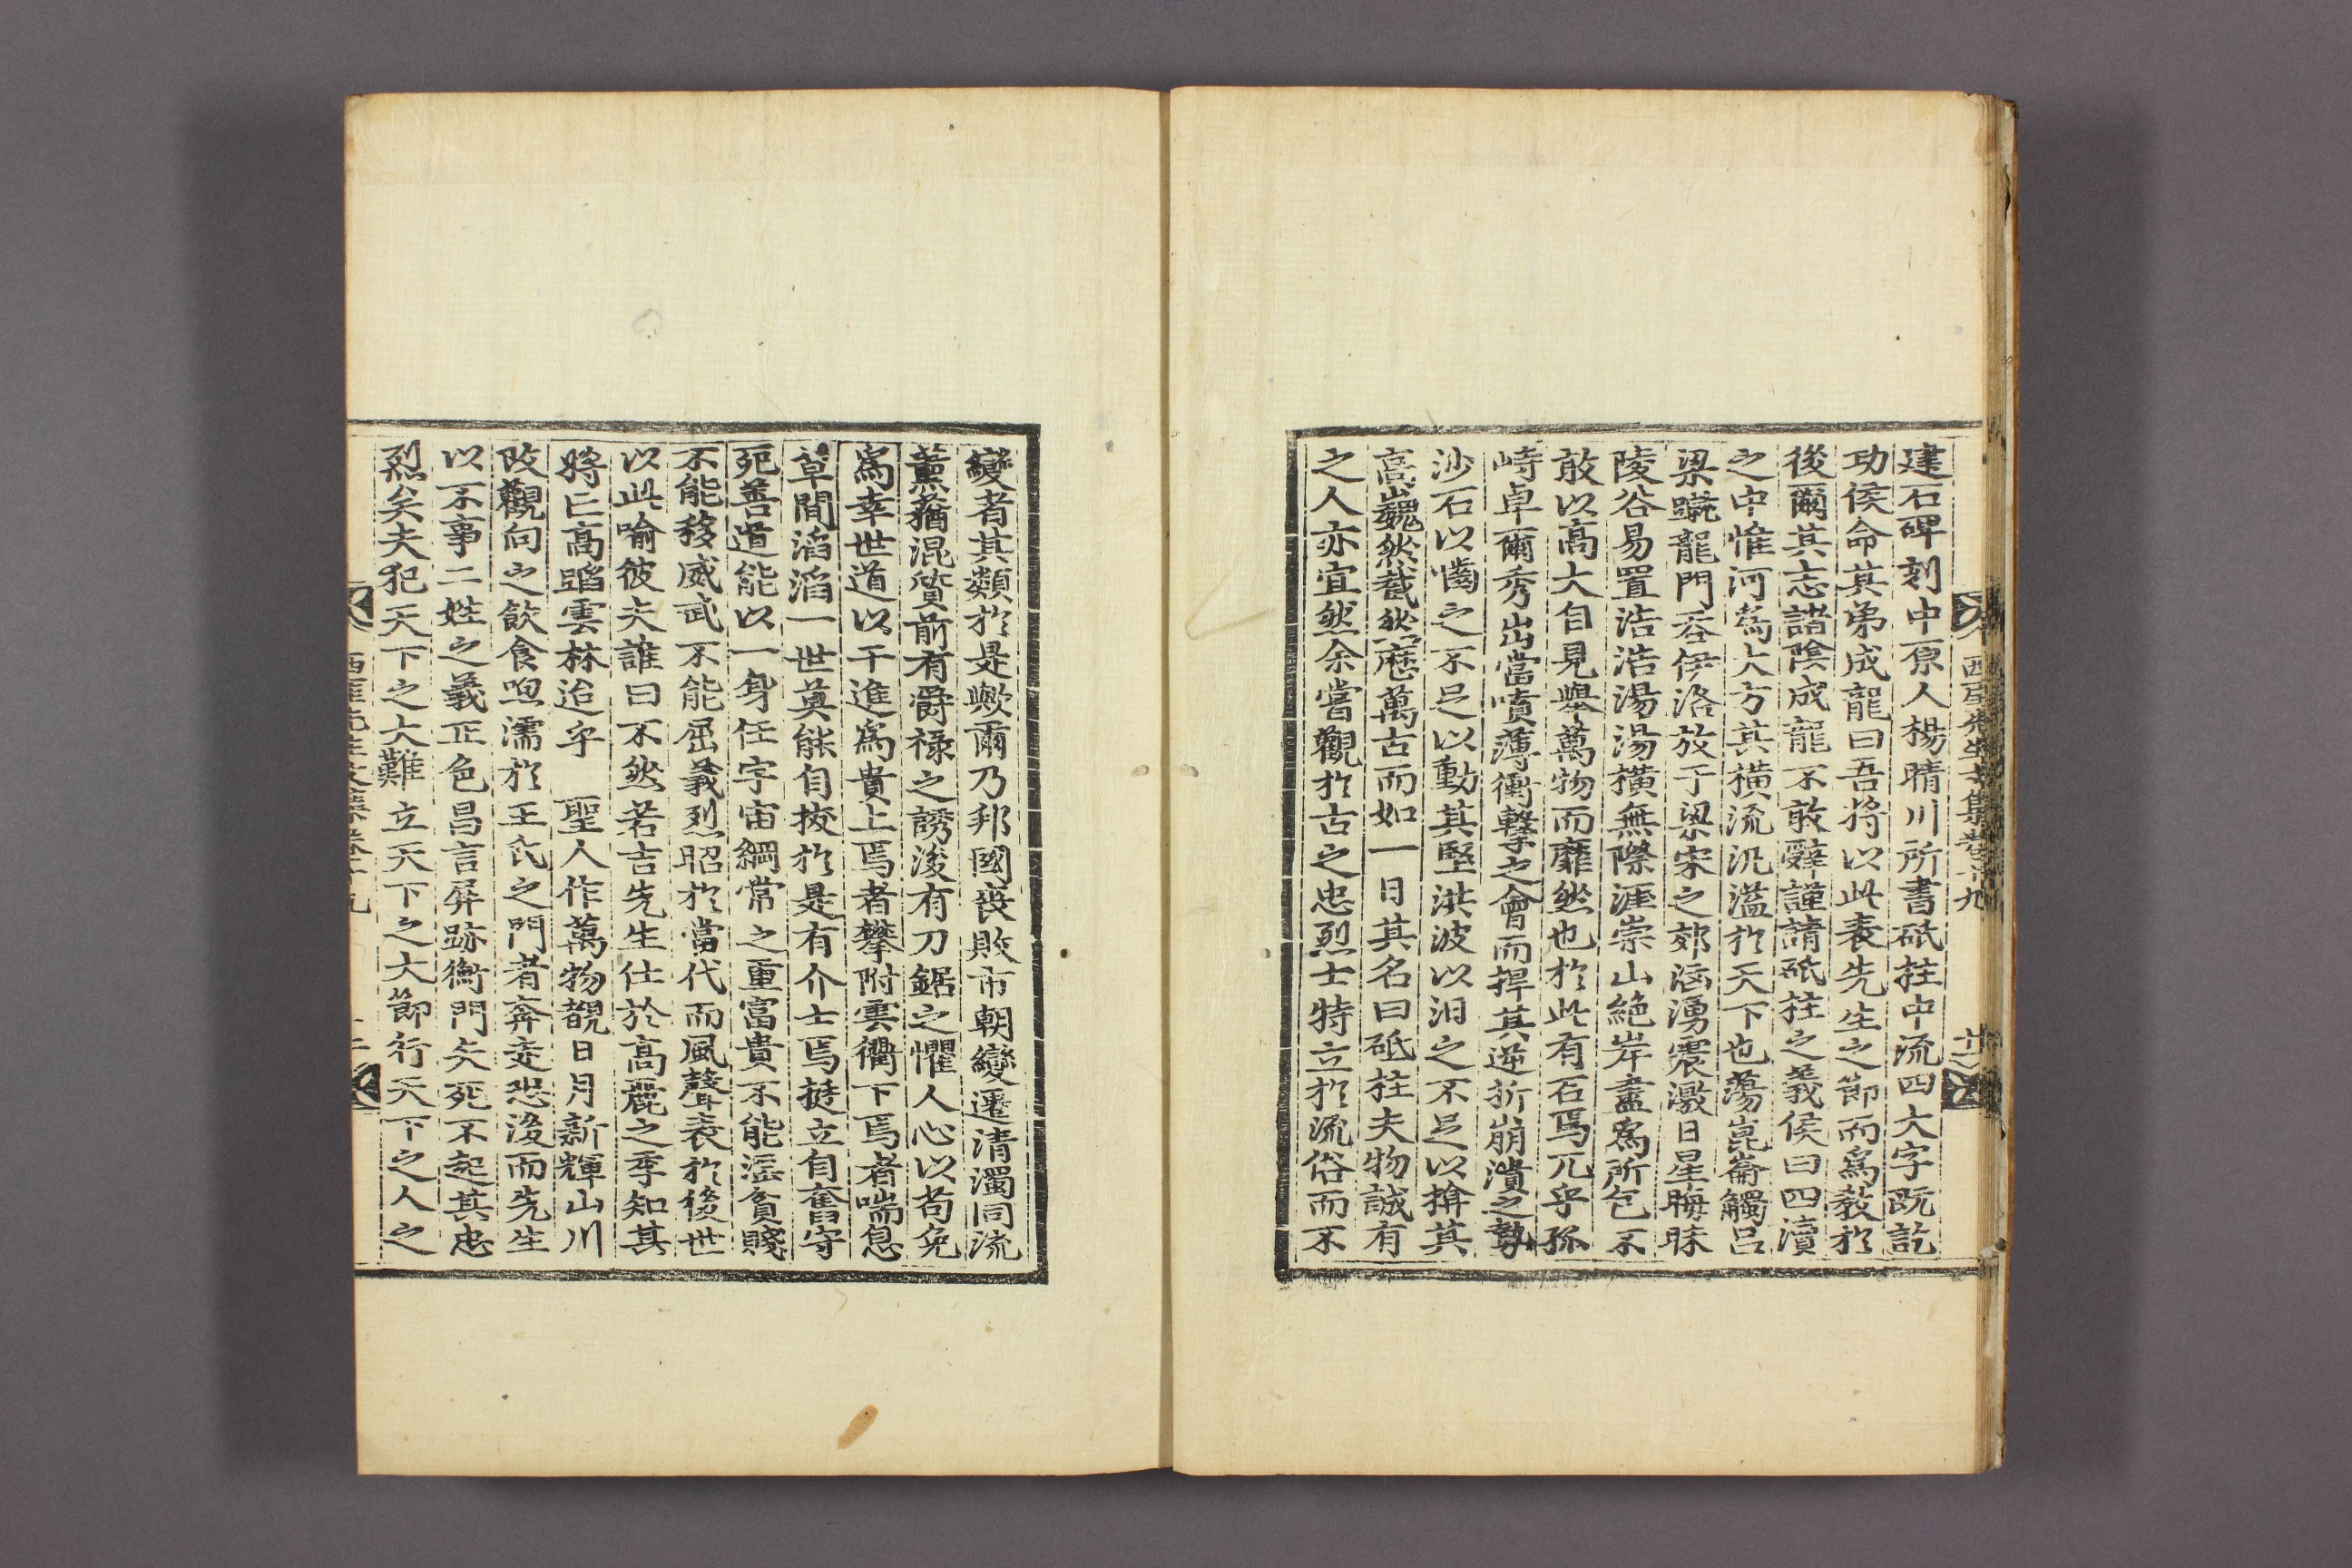 建石碑刻中原人楊晴川所書砥柱中流四大字既訖
功侯命其弟成龍曰吾將以此表先生之節而爲敎於
後爾其志諸陰成龍不敢辭謹請砥柱之義侯曰四瀆
之中惟河爲大方其橫流汎濫於天下也蕩崑崙觸呂
梁蹴龍門呑伊洛放于梁宋之郊洶湧震激日星晦昧
陵谷易置浩浩湯湯橫無際涯崇山絶岸盡爲所包不
敢以高大自見擧萬物而靡然也於此有石焉兀乎孤
峙卓爾秀出當噴薄衝擊之會而捍其逆折崩潰之勢
沙石以嚙之不足以動其堅洪波以汨之不足以揜其
高巍然截然歷萬古而如一日其名曰砥柱夫物誠有
之人亦宜然余嘗觀於古之忠烈士特立於流俗而不
西厓先生文集卷十九
變者其類於是歟爾乃邦國喪敗市朝變遷淸濁同流
薰蕕混質前有爵祿之誘後有刀鋸之懼人心以苟免
爲幸世道以干進爲貴上焉者攀附雲衢下焉者喘息
草間滔滔一世莫能自拔於是有介士焉挺立自奮守
死善道能以一身任宇宙綱常之重富貴不能淫貧賤
不能移威武不能屈義烈昭於當代而風聲表於後世
以此喻彼夫誰曰不然若吉先生仕於高麗之季知其
將亡高蹈雲林迨乎 聖人作萬物覩日月新輝山川
改觀向之飮食呴濡於王氏之門者奔走恐後而先生
以不事二姓之義正色昌言屛跡衡門矢死不起其忠
烈矣夫犯天下之大難立天下之大節行天下之人之
西厓先生文集卷十九